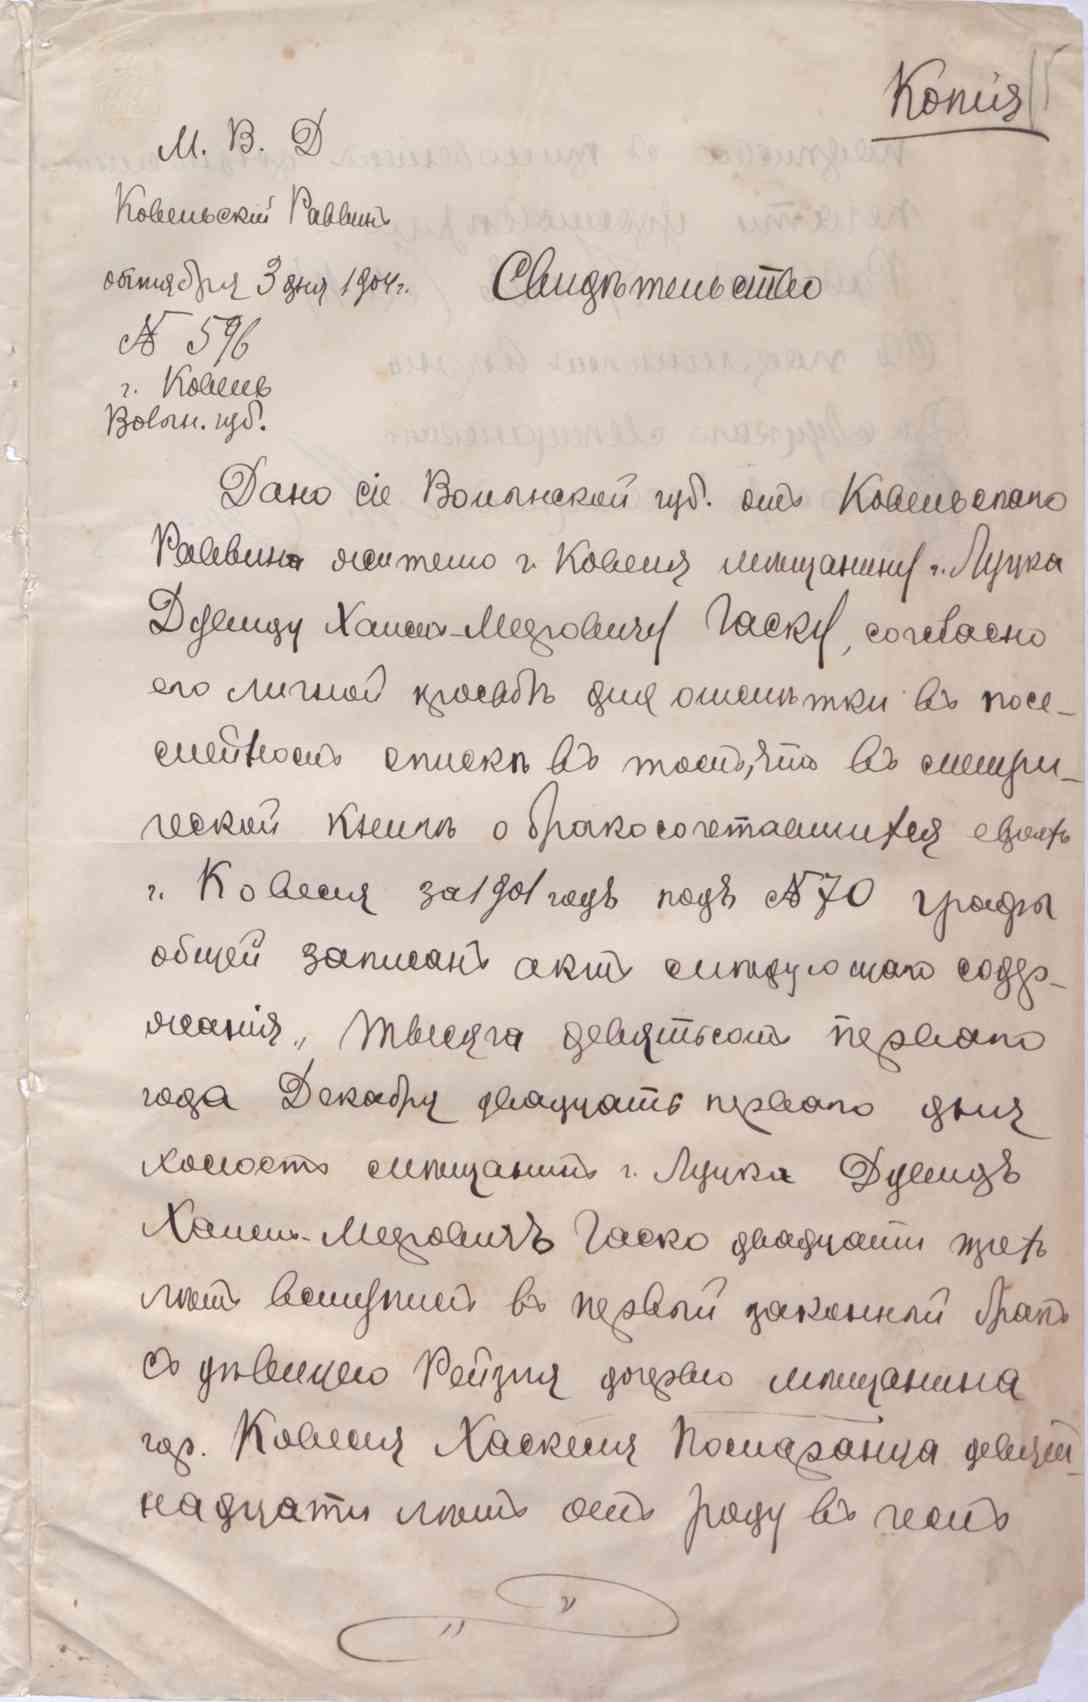 Копія
М. В. Д
Ковельскій Раввинъ
октября 3 дня 1904 г.
Свидѣтельство
№ 596
г. Ковель
Волын. губ.
Дано сіе Волынской губ. отъ Ковельскаго
Раввина жителю г. Ковеля мѣщанину г. Луцка
Дувиду Хаимъ-Меэровичу Гаску, согласно
его личной прозьбѣ для отмѣтки въ посе-
мейномъ спискѣ въ томъ, что въ метри-
ческой книгѣ о бракосочетавшихся евреяхъ
г. Ковеля за 1901 годъ подъ № 70 графы
общей записанъ актъ слѣдующаго содер-
жанія „Тысяча девятьсотъ перваго
года Декабря двадцать перваго дня
холостъ мѣщанинъ г. Луцка Дувидъ
Хаимъ-Меэровичъ Гаско двадцати трехъ
лѣтъ вступилъ въ первый законный бракъ
съ дѣвицею Рейзля дочерью мѣщанина
гор. Ковеля Хаскеля Помаранца девят-
надцати лѣтъ отъ роду въ чемъ